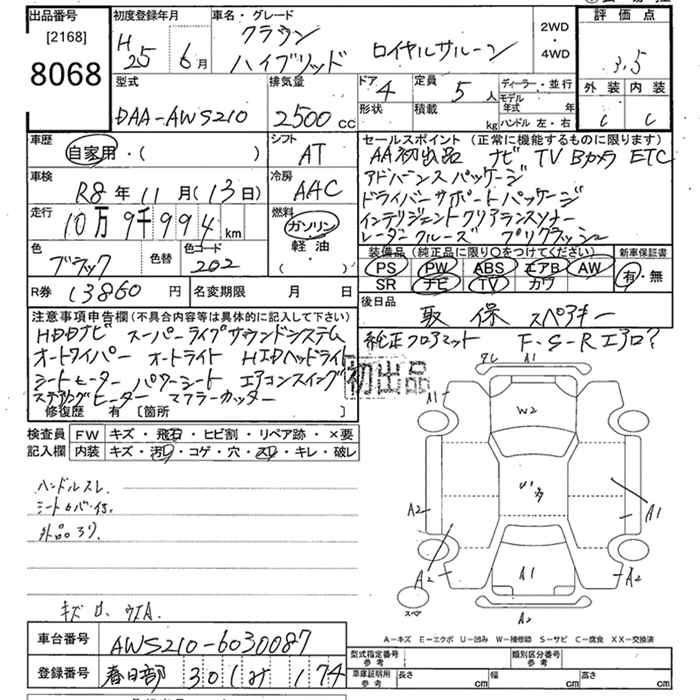 出品番号 初度登録年月 車名・グレード 2WD・4WD 評価点
[2168] H25年 6月 クラウン ハイブリッド ロイヤルサルーン 3.5
8068 外装 内装
C C
型式 排気量 ドア 4 定員 5人 ディーラー・並行
DAA-AWS210 2500cc 形状 積載 kg モデル年式 年
ハンドル 左・右
車歴 シフト セールスポイント (正常に機能するものに限ります)
自家用・( ) AT AA初出品 ナビ TV Bカメラ ETC
車検 冷房 アドバンスパッケージ
R8年 11月(13日) AAC ドライバーサポートパッケージ
走行 燃料 インテリジェントクリアランスソナー
10万9千994km ガソリン・軽油・( ) レーダークルーズ プリクラッシュ
色 色替 色コード 装備品 (純正品に限り○をつけてください) 新車保証書
ブラック 202 PS PW ABS エアB AW 有・無
SR ナビ TV カワ
R券 13860円 名変期限 月 日 後日品
取 保 スペアキー
注意事項申告欄(不具合内容等は具体的に記入して下さい) 純正フロアマット F・S・Rエアロ?
HDDナビ スーパーライブサウンドシステム
オートワイパー オートライト HIDヘッドライト
シートヒーター パワーシート エアコンスイング
ステアリングヒーター マフラーカッター
初出品
修復歴 有 [箇所 ]
検査員 FW キズ・飛石・ヒビ割・リペア跡・×要
記入欄 内装 キズ・汚レ・コゲ・穴・スレ・キレ・破レ
A1
A1
W2
ハンドルスレ
A2
A1
外品マフ
A2
A2
A1
A2
スペア
キズ 凹 ウスA
A-キズ E-エクボ U-凹み W-補修跡 S-サビ C-腐食 XX-交換済
車台番号 AWS210-6030087
型式指定番号 参考 類別区分番号 参考
登録番号 春日部 301 174
車庫証明用 参考 長さ cm 幅 cm 高さ cm